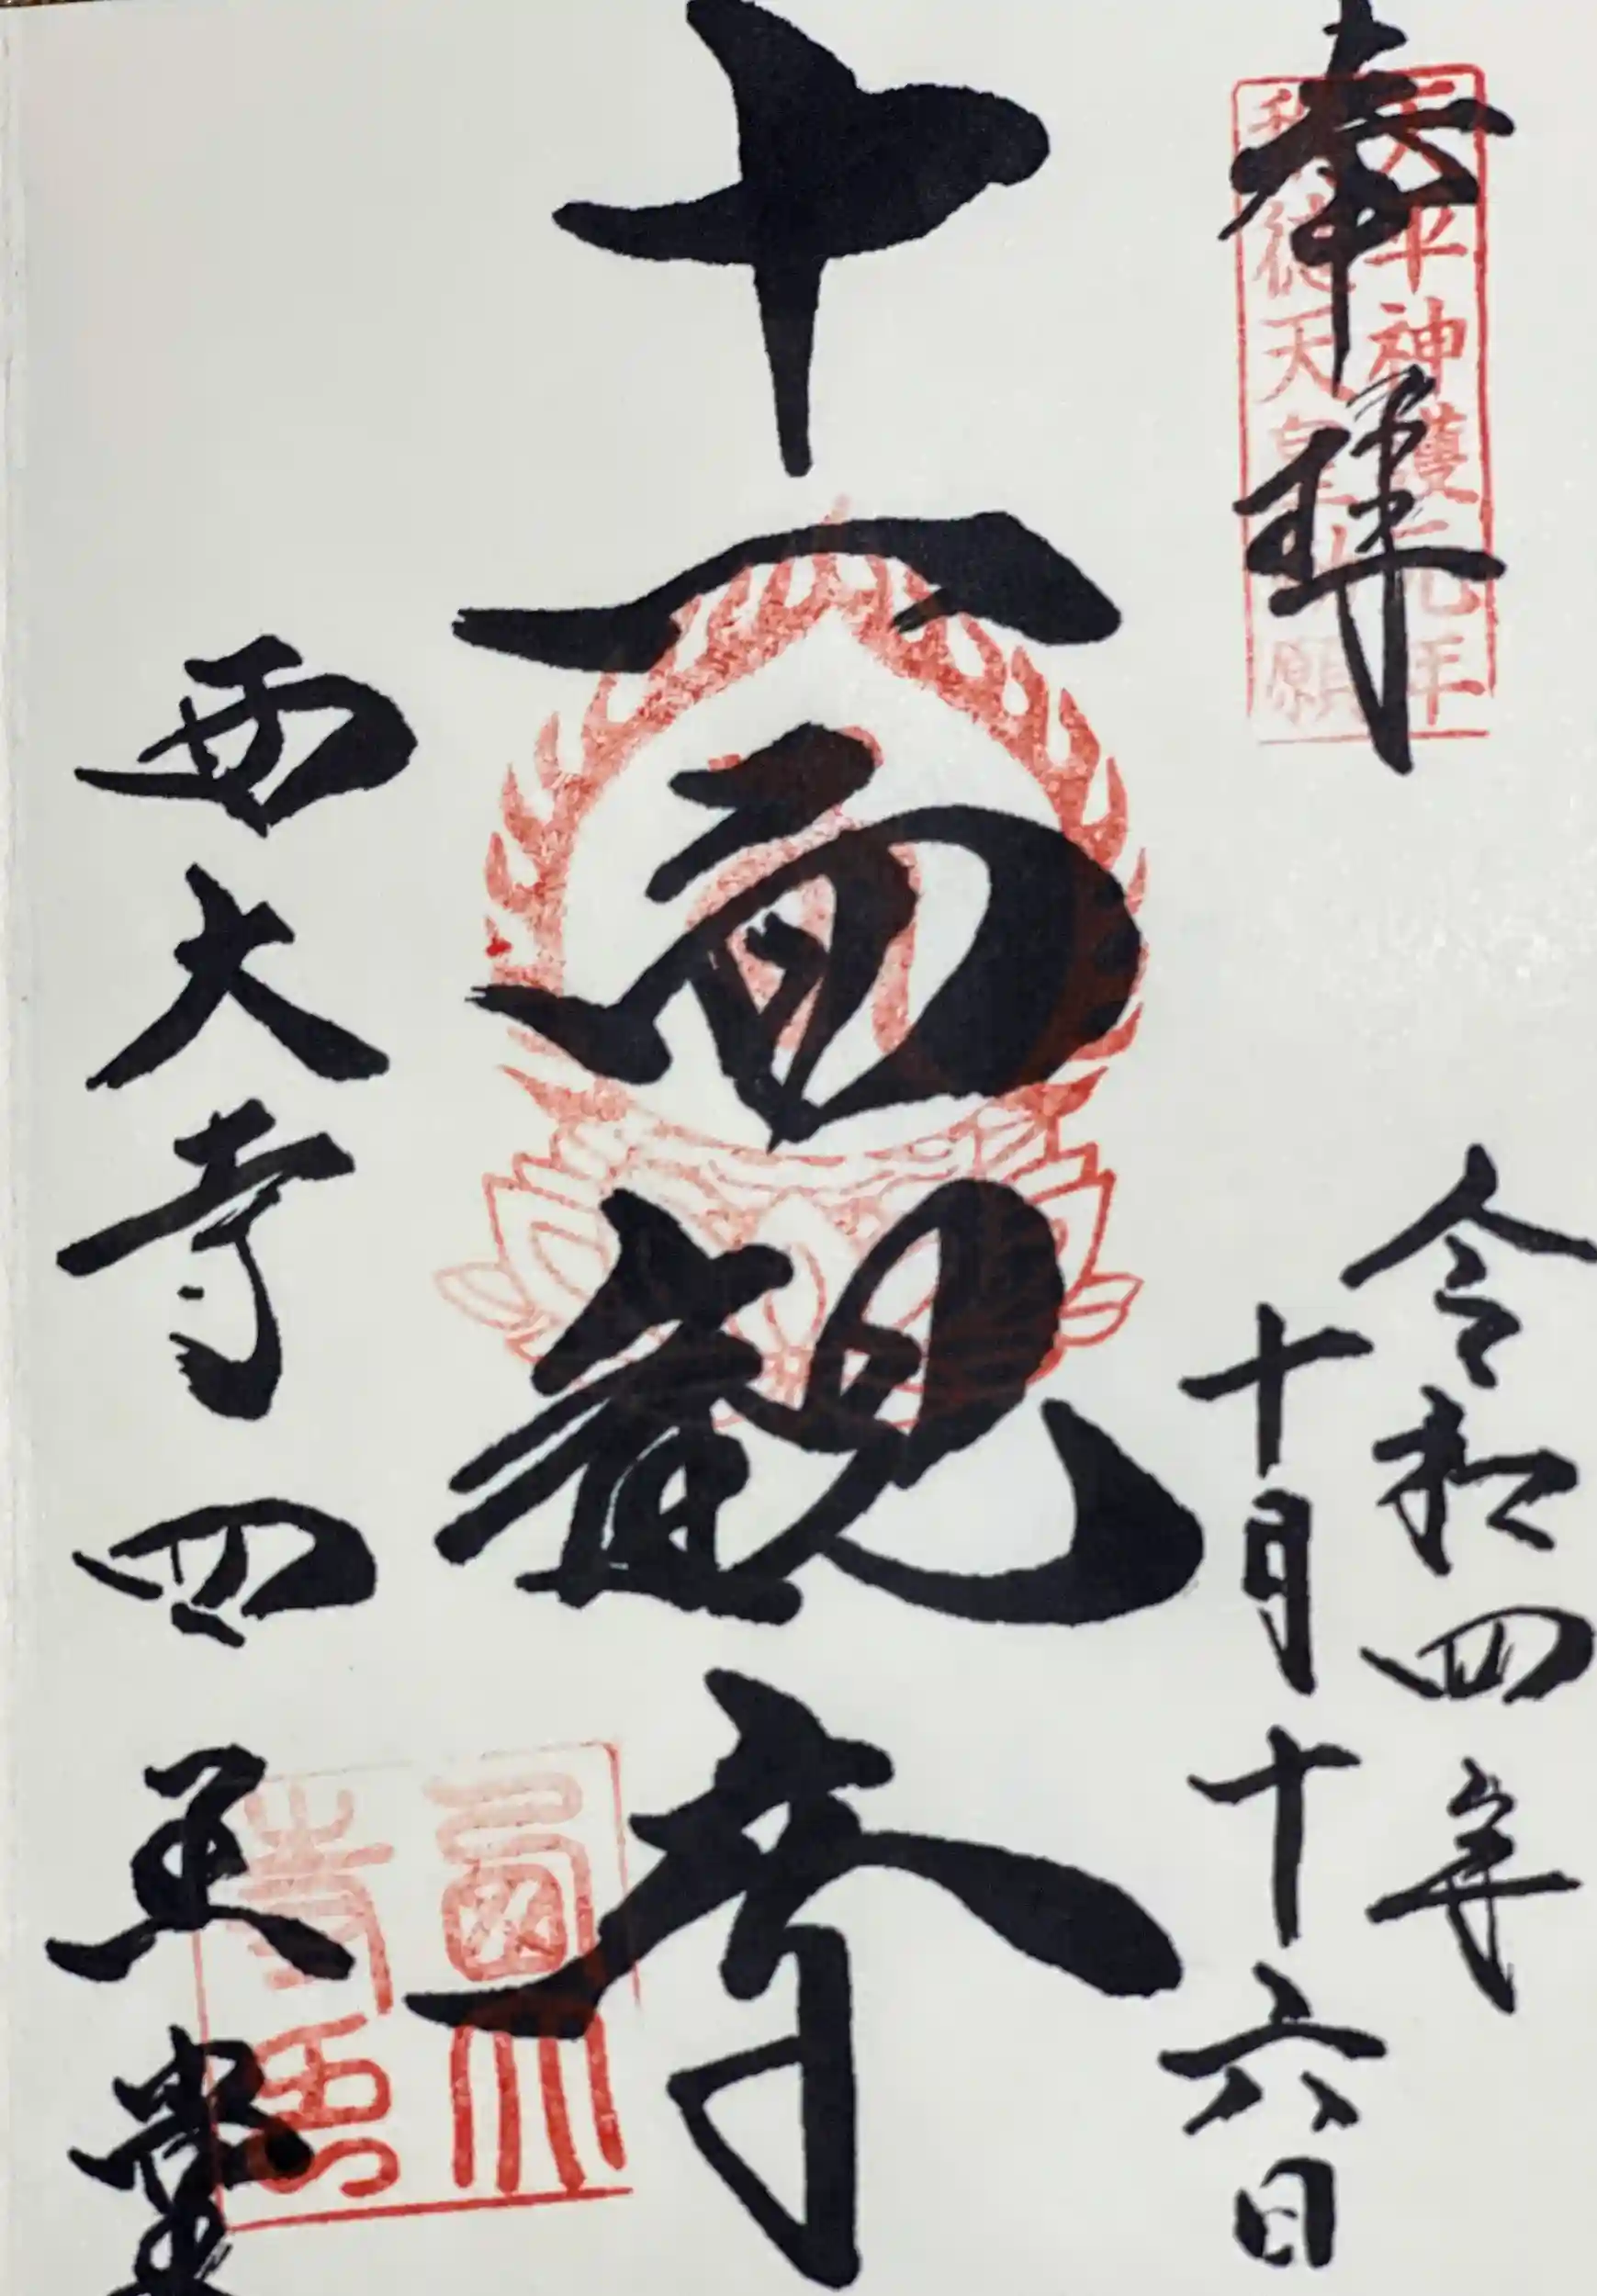 奉拝
天平神護元年
称徳天皇勅願
令和四年
十月十六日
十一面観音
西大寺四王堂